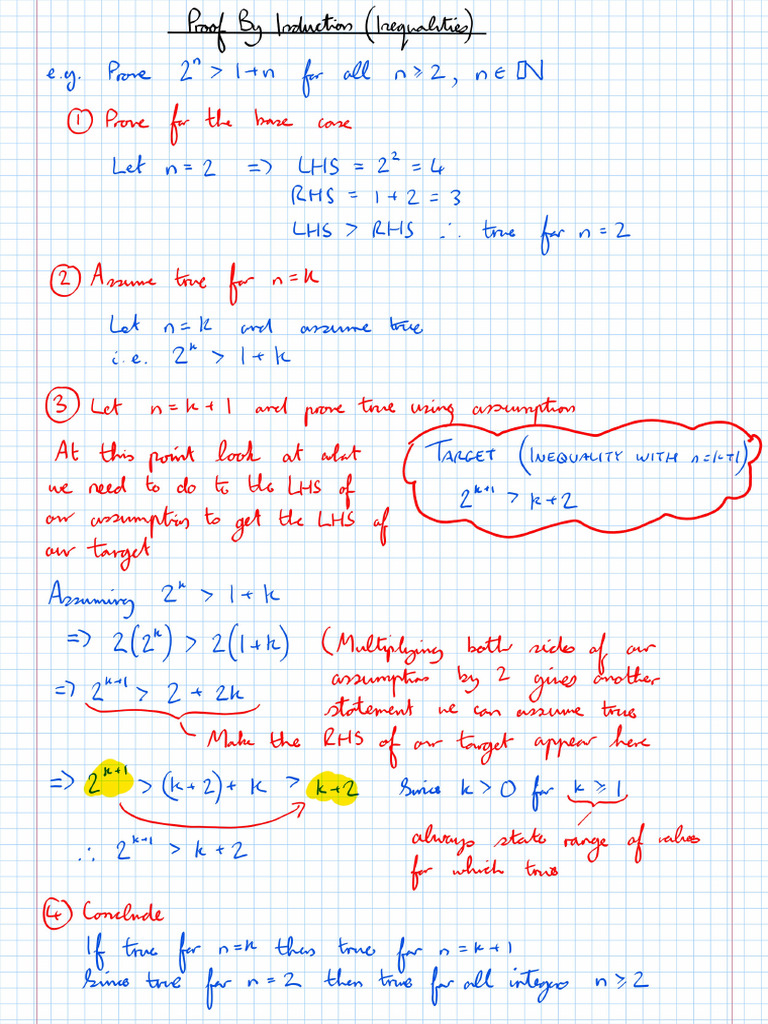 Proof By Induction (Inequalities)
e.g. Prove 2ⁿ > 1+n for all n ≥ 2, n ∈ ℕ
① Prove for the base case
Let n = 2 => LHS = 2² = 4
RHS = 1 + 2 = 3
LHS > RHS ∴ true for n = 2
② Assume true for n = k
Let n = k and assume true
i.e. 2ᵏ > 1 + k
③ Let n = k + 1 and prove true using assumption
At this point look at what
we need to do to the LHS of
our assumption to get the LHS of
our target
TARGET (INEQUALITY WITH n=k+1)
2ᵏ⁺¹ > k + 2
Assuming 2ᵏ > 1 + k
=> 2(2ᵏ) > 2(1+k) (Multiplying both sides of our
assumption by 2 gives another
statement we can assume true
=> 2ᵏ⁺¹ > 2 + 2k
Make the RHS of our target appear here
=> 2ᵏ⁺¹ > (k+2) + k > k+2 since k > 0 for k ≥ 1
always state range of values
for which true
∴ 2ᵏ⁺¹ > k + 2
④ Conclude
If true for n=k then true for n = k+1
Since true for n = 2 then true for all integers n ≥ 2